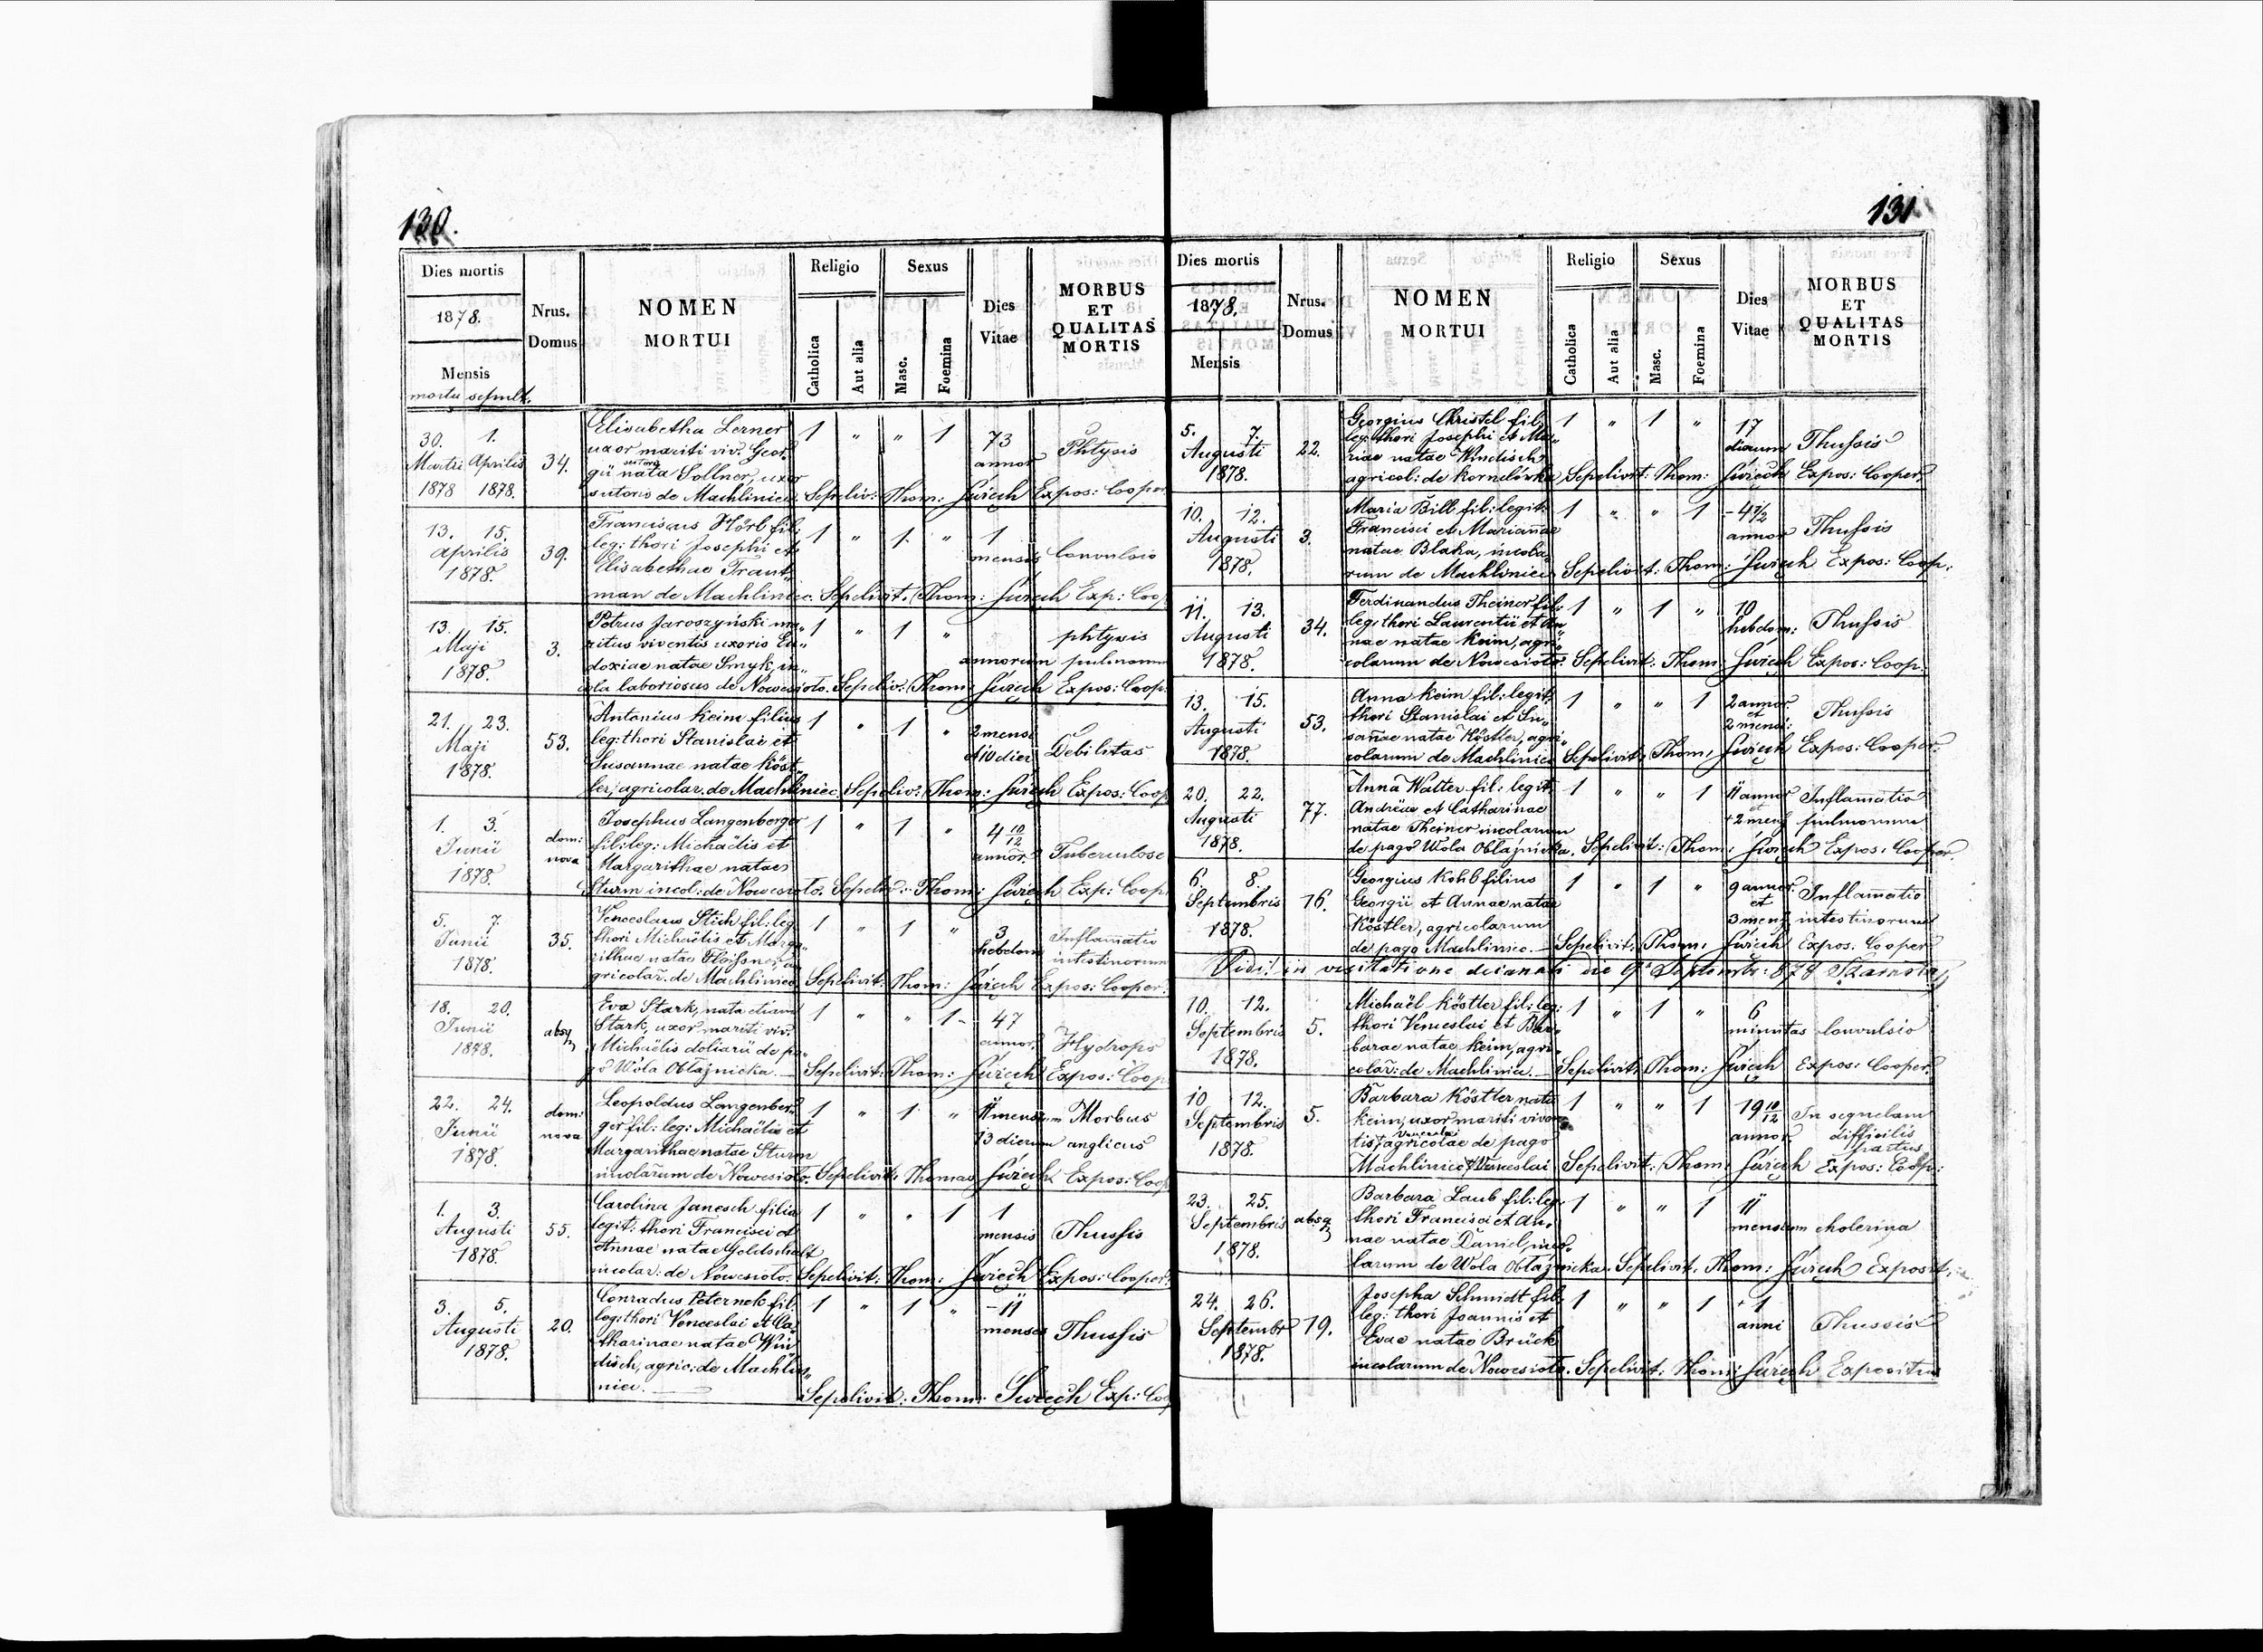 130.
Dies mortis
1878.
Mensis
mortui sepult.
Nrus. Domus
NOMEN MORTUI
Religio
Catholica
Aut alia
Sexus
Masc.
Foemina
Dies Vitae
MORBUS ET QUALITAS MORTIS
30. 1. 34. Elisabetha Lerner 1 " " 1 73 Phtysis
Martii Aprilis uxor mariti viv. Geor= annor
1878 1878. gii nata Sollner, uxor
sutoris de Machliniec. Sepeliv: Thom: Świech Expos: Cooper
13. 15. 39. Franciscus Hörb fil: 1 " 1 " 1 Convulsio
Aprilis leg: thori Josephi et mensis
1878. Elisabethae Traut=
man de Machliniec. Sepelivit: Thom: Świech Exp: Coop
13. 15. 3. Petrus Jaroszyński ma= 1 " 1 " phtysis
Maji ritus viventis uxoris Eu= annorum pulmonum
1878. doxiae natae Smyk, in=
cola laboriosus de Nowesioło. Sepeliv: Thom: Świech Expos: Coop:
21. 23. 53. Antonius Keim filius 1 " 1 " 2 mens
Maji leg: thori Stanislai et et 10 dier Debilitas
1878. Susannae natae Köst=
ler, agricolar. de Machliniec. Sepeliv: Thom: Świech Expos: Coop
1. 3. dom: nova Josephus Langenberger 1 " 1 " 4 10/12
Junii fil: leg: Michaëlis et annor. Tuberculose
1878. Margarithae natae
Sturm incol: de Nowesioło. Sepeliv: Thom: Świech Exp: Coop
5. 7. 35. Venceslaus Stich fil: leg: 1 " 1 " 3 Inflamatio
Junii thori Michaëlis et Marga= hebdom intestinorum
1878. rithae natae Fleissner, a=
gricolar. de Machliniec Sepelivit: Thom: Świech Expos: Cooper.
18. 20. absq Eva Stark, nata etiam 1 " " 1 47
Junii Stark, uxor mariti viv. annor. Hydrops
1878. Michaëlis doliarii de pa=
go Wola Obłaźnicka. Sepelivit: Thom: Świech Expos: Coop
22. 24. dom: nova Leopoldus Langenber= 1 " 1 " 11 mensium Morbus
Junii ger fil: leg: Michaëlis et 13 dierum anglicus
1878. Margarithae natae Sturm
incolarum de Nowesioło. Sepelivit: Thomas Świech Expos: Coop
1. 3. 55. Carolina Janesch filia 1 " " 1 1
Augusti legit: thori Francisci et mensis Thussis
1878. Annae natae Goldschalt
incolar: de Nowesioło. Sepelivit: Thom: Świech Expos: Cooper.
3. 5. 20. Conradus Peternek fil: 1 " 1 " 11
Augusti leg: thori Venceslai et Ca= menses Thussis
1878. tharinae natae Win=
disch, agric: de Machli=
niec. Sepelivit: Thom: Świech Exp: Coo
131
Dies mortis
1878.
Mensis
Nrus. Domus
NOMEN MORTUI
Religio
Catholica
Aut alia
Sexus
Masc.
Foemina
Dies Vitae
MORBUS ET QUALITAS MORTIS
5. 7. 22. Georgius Christel fil: 1 " 1 " 17
Augusti leg: thori Josephi et Ma= dierum Thussis
1878. riae natae Windisch
agricol: de Kornelówka Sepelivit: Thom: Świech Expos: Cooper.
10. 12. 3. Maria Bill fil: legit: 1 " " 1 4 1/2
Augusti Francisci et Mariannae annor Thussis
1878. natae Blaha, incola=
rum de Machliniec Sepelivit: Thom: Świech Expos: Coop.
11. 13. 34. Ferdinandus Theiner fil: 1 " 1 " 10
Augusti leg: thori Laurentii et An= hebdom: Thussis
1878. nae natae Keim, agri=
colarum de Nowesioło. Sepelivit: Thom: Świech Expos: Coop.
13. 15. 53. Anna Keim fil: legit: 1 " " 1 2 annor.
Augusti thori Stanislai et Su= et 2 mens: Thussis
1878. sanae natae Köstler, agri=
colarum de Machliniec Sepelivit: Thom: Świech Expos: Cooper.
20. 22. 77. Anna Walter fil: legit: 1 " " 1 11 annor Inflamatio
Augusti Andreae et Catharinae et 2 mens pulmonum
1878. natae Theiner incolarum
de pago Wola Obłaźnicka. Sepelivit: Thom: Świech Expos: Cooper.
6. 8. 16. Georgius Kohl filius 1 " 1 " 9 annor. Inflamatio
Septembris Georgii et Annae natae et 3 mens intestinorum
1878. Köstler, agricolarum
de pago Machliniec. Sepelivit: Thom: Świech Expos: Cooper
Vidi in visitatione decanali die 9 Septembr: 878
10. 12. 5. Michaël Köstler fil: leg: 1 " 1 " 6
Septembris thori Venceslai et Bar= minutas Convulsio
1878. barae natae Keim, agri=
colar: de Machliniec. Sepelivit: Thom: Świech Expos: Cooper.
10 12. 5. Barbara Köstler nata 1 " " 1 19 10/12 In sequelam
Septembris Keim, uxor mariti viven= annor. difficilis
1878. tis Venceslai agricolae de pago partus
Machliniec Venceslai Sepelivit: Thom: Świech Expos: Coop:
23. 25. absq Barbara Laub fil: leg: 1 " " 1 11
Septembris thori Francisci et An= mensium cholerina
1878. nae natae Daniel, inco=
larum de Wola Obłaźnicka. Sepelivit: Thom: Świech Exposit.
24. 26. 19. Josepha Schmidt fil: 1 " " 1 1
Septembr leg: thori Joannis et anni Thussis
1878. Evae natae Brück
incolarum de Nowesioło. Sepelivit: Thom: Świech Expositus